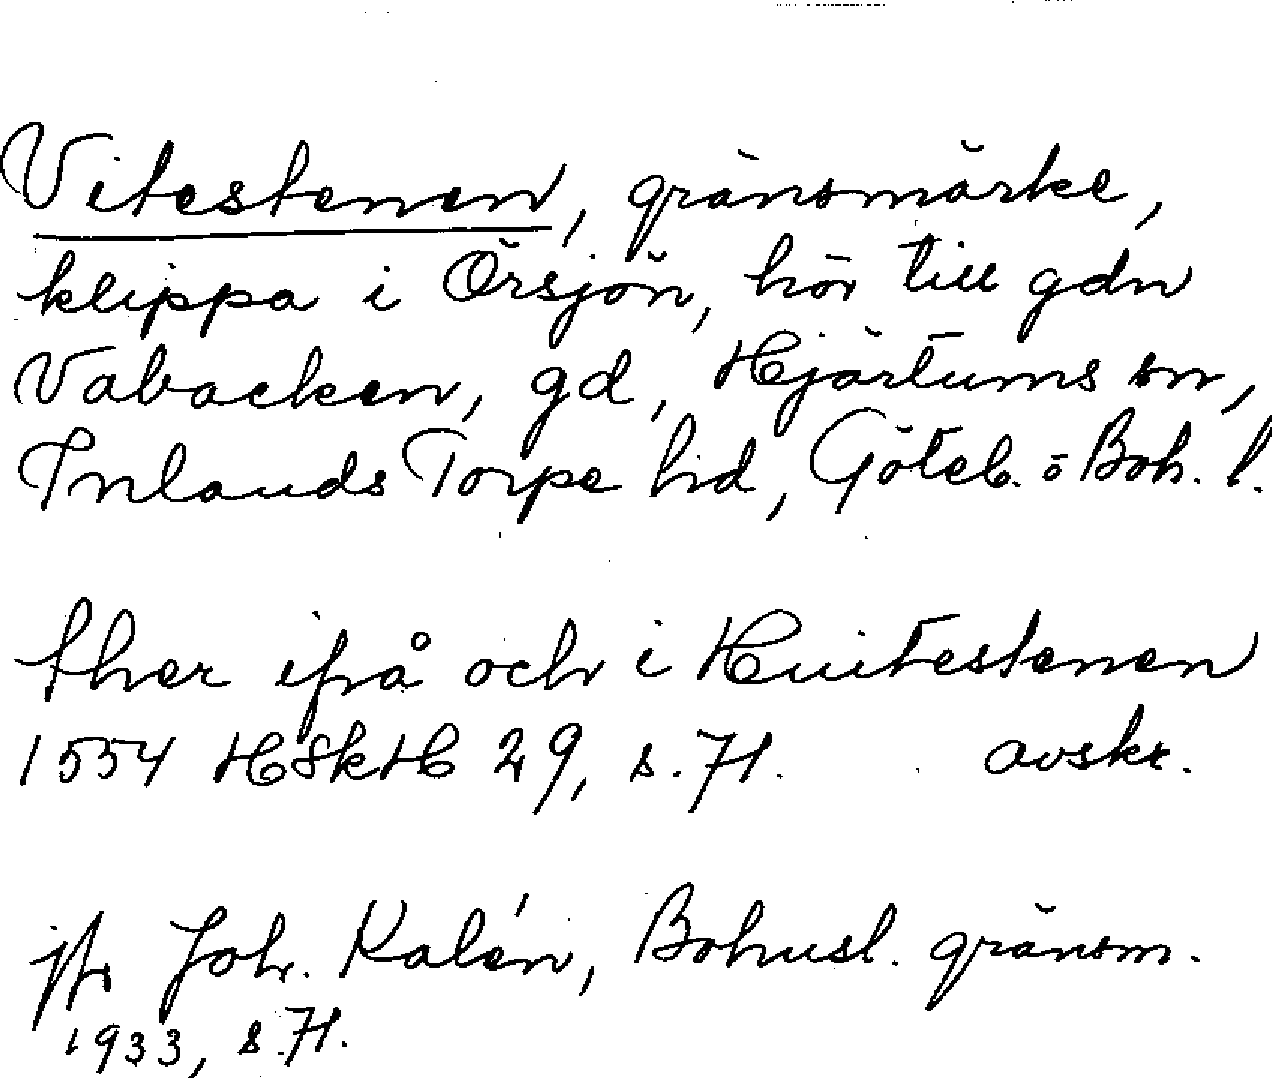 Vitestenen, gränsmärke,
klippa i Örsjön, hör till gdn
Vabacken, gd, Hjärtums sn,
Inlands Torpe hd, Göteb. o Boh. l.
ther ifrå och i Huitestenen
1554 HSkH 29, s. 71. avskr.
jfr Joh. Kalén, Bohusl. gränsm.
1933, s. 71.